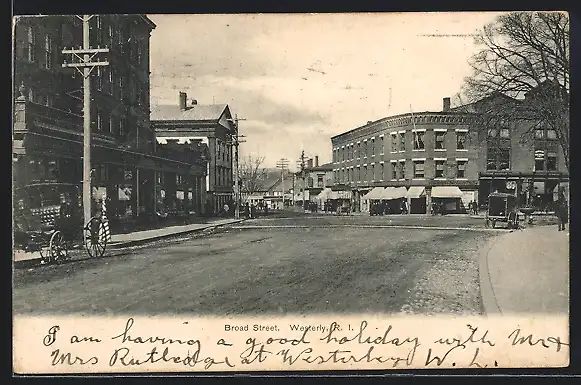 Broad Street. Westerly, R. I.
I am having a good holiday with Mr &
Mrs Rutledge at Westerly. W. L.